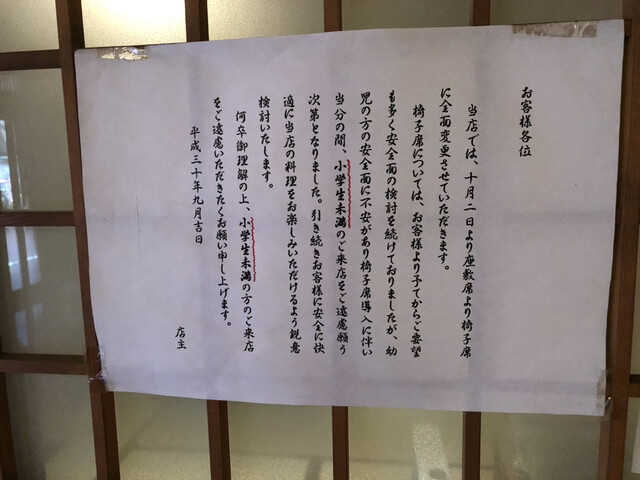 お客様各位
当店では、十月二日より座敷席より椅子席
に全面変更させていただきます。
椅子席については、お客様より予てからご要望
も多く安全面の検討を続けておりましたが、幼
児の方の安全面に不安があり椅子席導入に伴い
当分の間、小学生未満のご来店をご遠慮願う
次第となりました。引き続きお客様に安全に快
適に当店の料理をお楽しみいただけるよう鋭意
検討いたします。
何卒御理解の上、小学生未満の方のご来店
をご遠慮いただきたくお願い申し上げます。
平成三十年九月吉日
店主